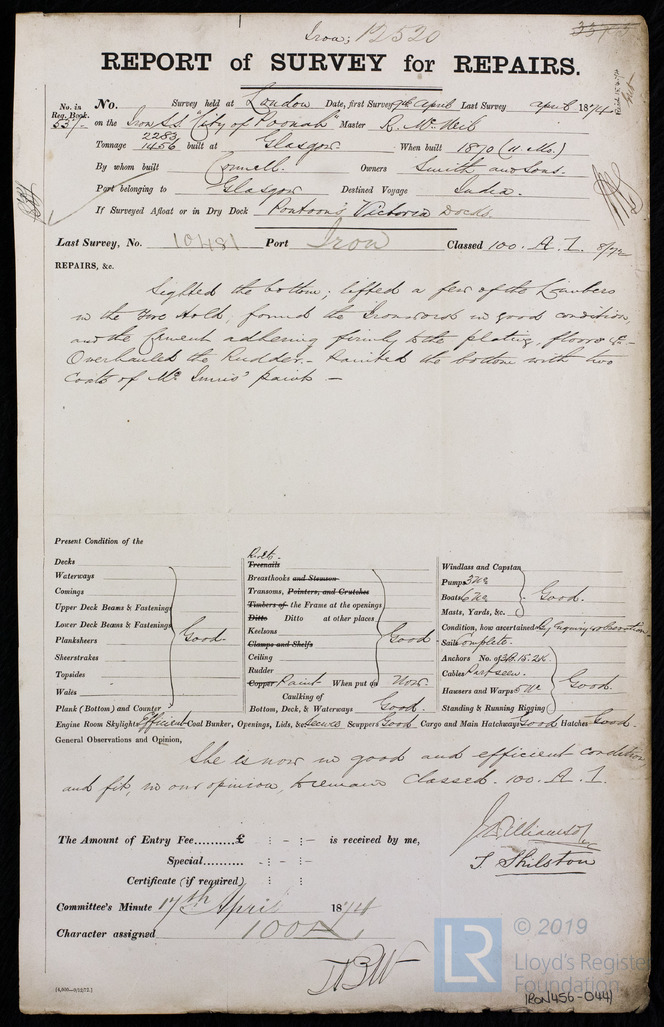 Iron; 12520
REPORT of SURVEY for REPAIRS.
No. in Reg. Book. No. Survey held at London Date, first Survey 9th April Last Survey April 1874
537- on the Iron S.S. "City of Poonah" Master R. McNeil
Tonnage 2283 1456 built at Glasgow When built 1870 (11 Mo.)
By whom built Connell. Owners Smith and Sons.
Port belonging to Glasgow Destined Voyage India.
If Surveyed Afloat or in Dry Dock Pontoons Victoria Docks.
Last Survey, No. 10481 Port Iron Classed 100. A. 1. 8/72
REPAIRS, &c.
Sighted the bottom; lifted a few of the Limbers
in the Fore Hold, found the Ironwork in good condition,
and the Cement adhering firmly to the plating, floors &c.-
Overhauled the Rudder.- Painted the bottom with two
coats of Mc Innis' paint -
Present Condition of the
Decks
Waterways
Comings
Upper Deck Beams & Fastenings
Lower Deck Beams & Fastenings Good.
Planksheers
Sheerstrakes
Topsides
Wales
Plank (Bottom) and Counter
Rivets.
Treenails
Breasthooks and Stemson
Transoms, Pointers, and Crutches
Timbers of the Frame at the openings
Ditto Ditto at other places
Keelsons Good
Clamps and Shelfs
Ceiling
Rudder
Copper Paint When put on Now
Caulking of
Bottom, Deck, & Waterways Good.
Windlass and Capstan
Pumps 3 No
Boats 6 No Good.
Masts, Yards, &c.
Condition, how ascertained By Enquiry & observation
Sails Complete.
Anchors No. of 3B. 1S. 2K.
Cables Part seen. Good.
Hausers and Warps 5 No
Standing & Running Rigging
Engine Room Skylights Efficient Coal Bunker, Openings, Lids, &c. Secure Scuppers Good Cargo and Main Hatchways Good Hatches Good.
General Observations and Opinion,
She is now in good and efficient condition
and fit, in our opinion, to remain classed. 100. A. 1.
The Amount of Entry Fee..........£ : - : - is received by me,
Special........... - : - : -
Certificate (if required) : - : -
J Williamson
T Shilston
Committee's Minute 17th April 1874
Character assigned 100A1
[4,000—9/12/72.]
LR © 2019
Lloyd's Register
Foundation
IRON456-0441